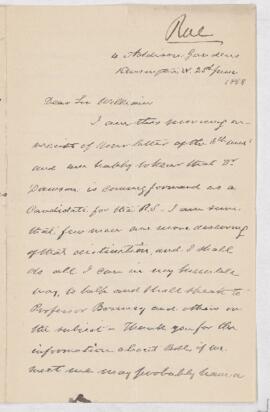 Rae
4 Addison Gardens
Kensington W. 25th June
1888
Dear Sir William
I am this morning in
receipt of your letter of the
and am happy to hear that Dr
Dawson is coming forward as a
Candidate for the R.S. I am sure
that few men are more deserving
of that distinction, and I shall
do all I can in my humble
way, to help and shall speak to
Professor Bonney and others on
the subject - Thank you for the
information about Bell, if we
meet we may probably have a